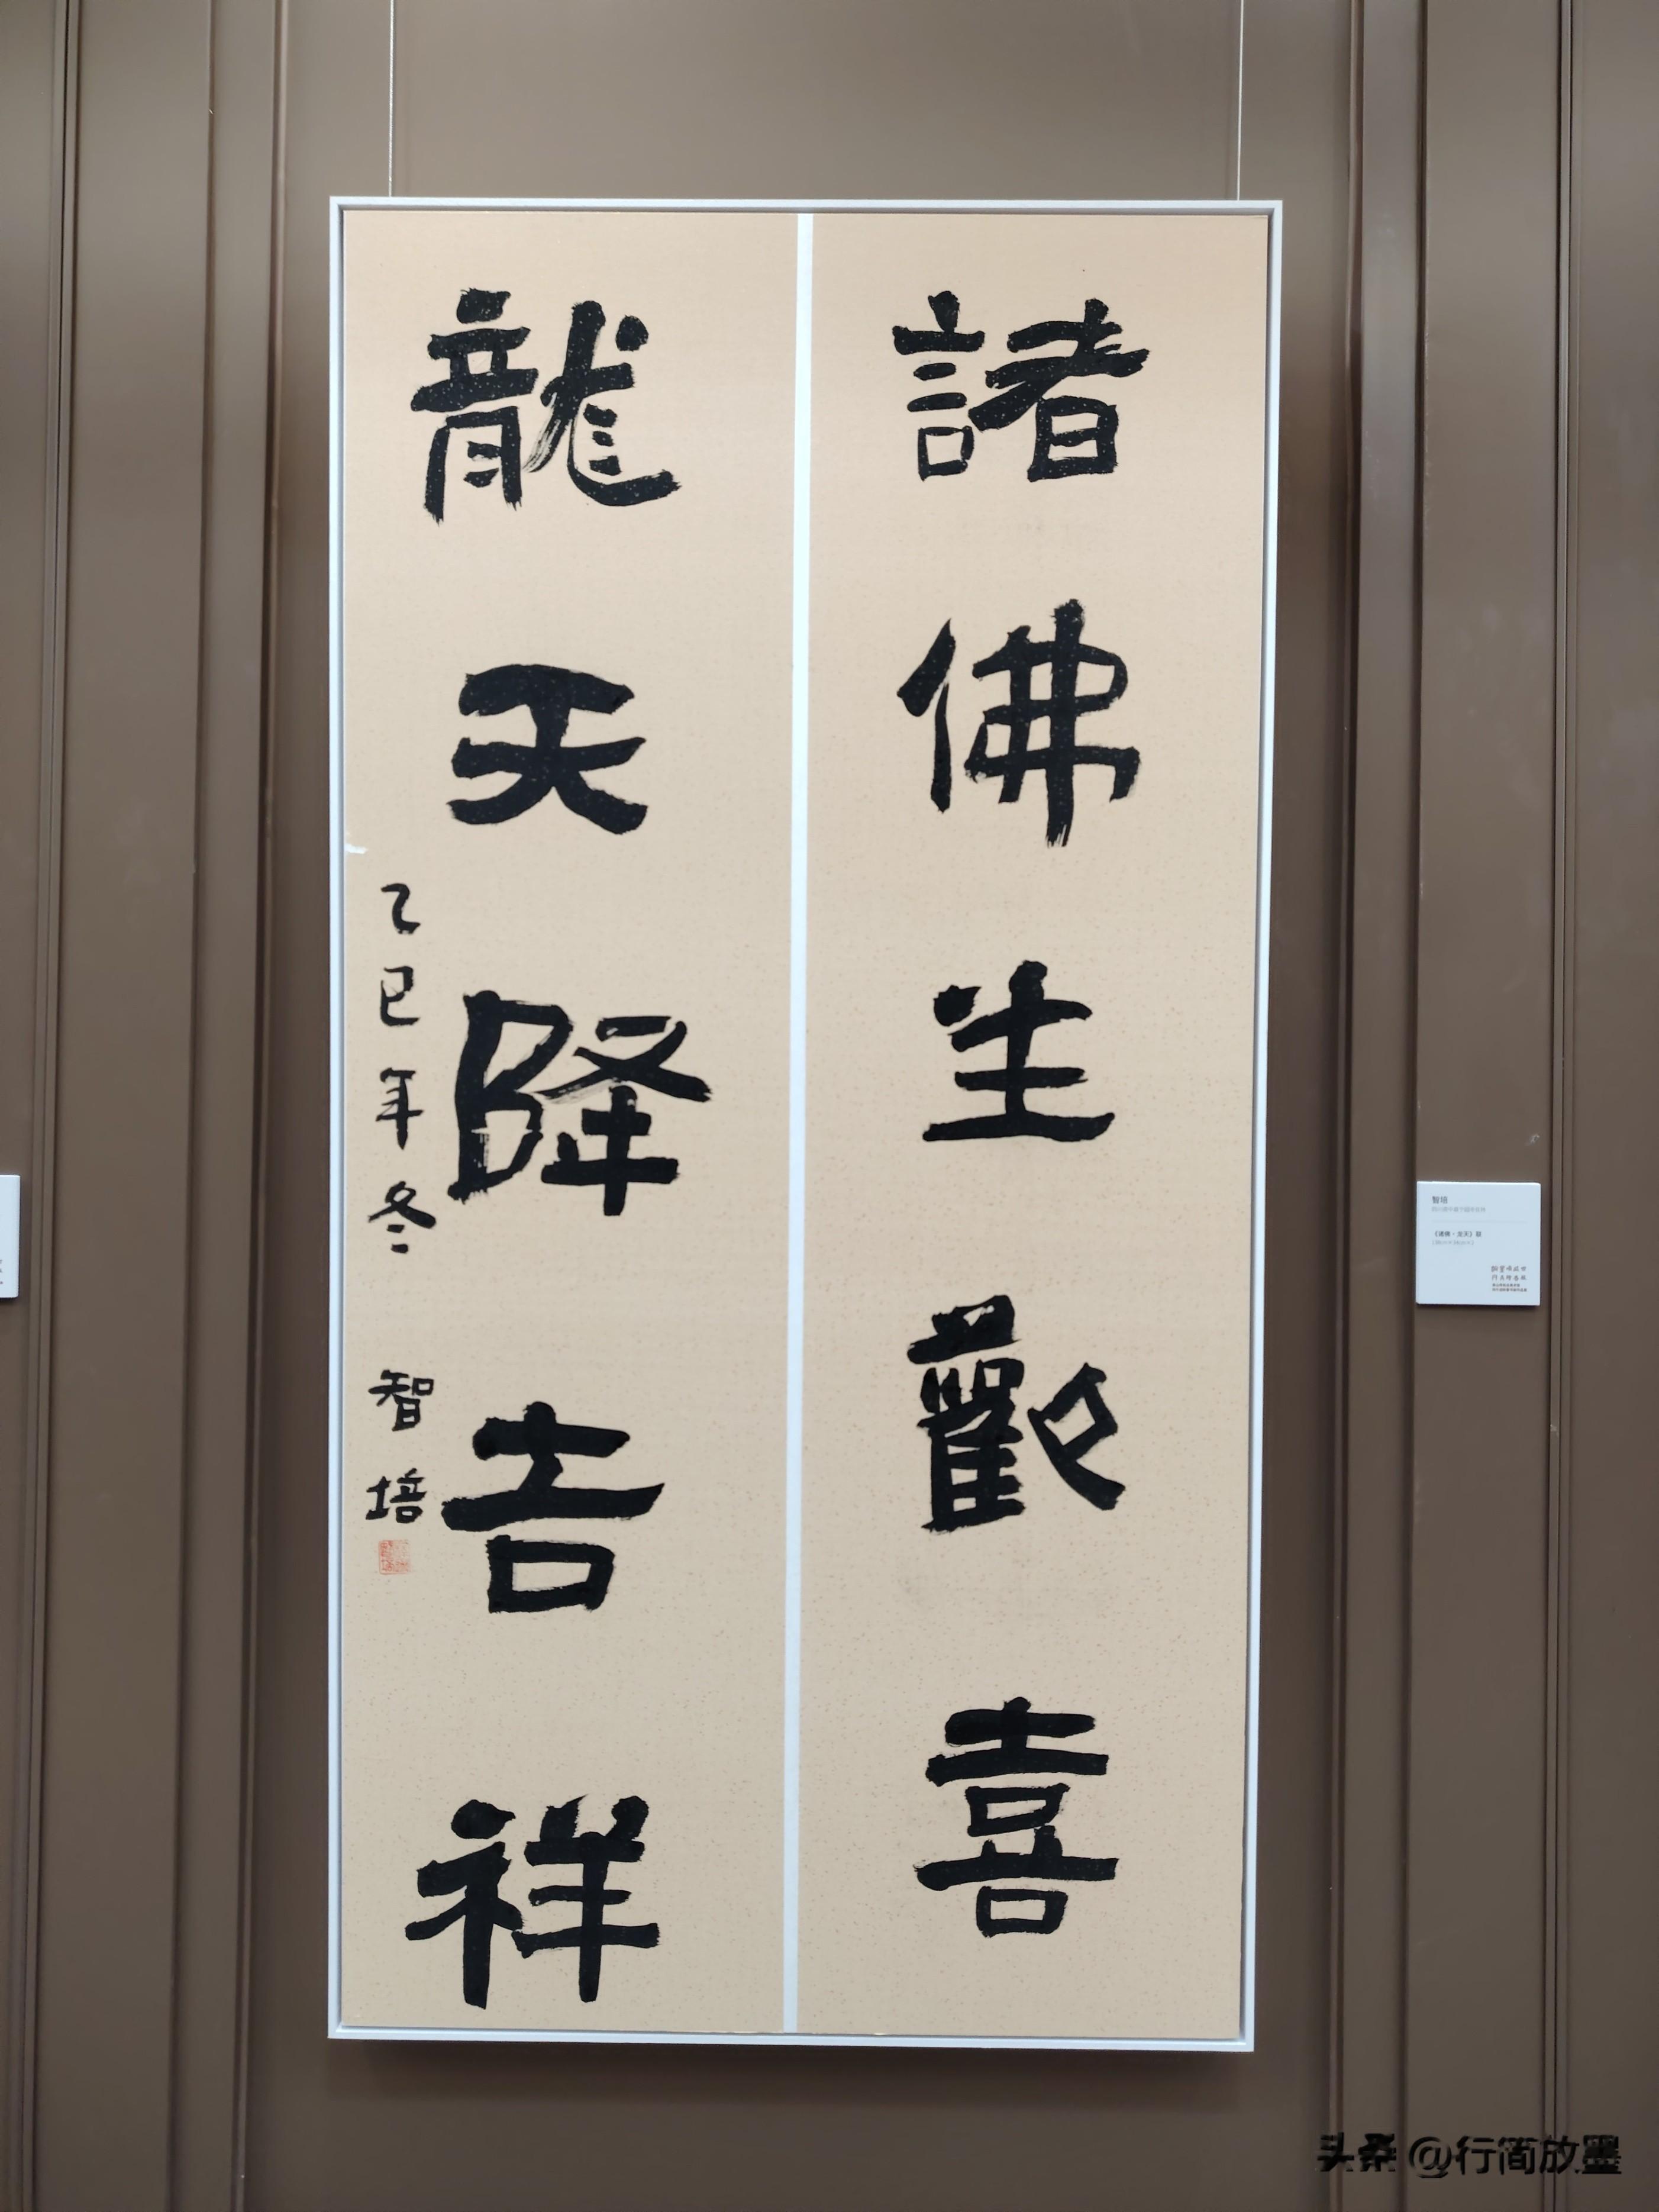 諸佛生歡喜
龍天降吉祥
乙巳年冬 智培
智培
《诸佛·龙天》联
头条 @行简放墨